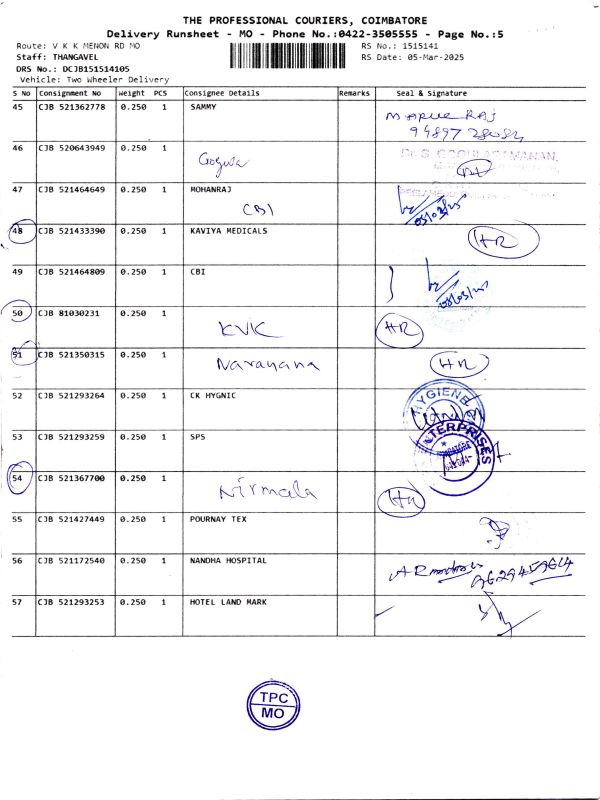 THE PROFESSIONAL COURIERS, COIMBATORE
Delivery Runsheet - MO - Phone No.:0422-3505555 - Page No.:5
Route: V K K MENON RD MO
RS No.: 1515141
Staff: THANGAVEL
RS Date: 05-Mar-2025
DRS No.: DCJB151514105
Vehicle: Two Wheeler Delivery
S No Consignment No Weight PCS Consignee Details Remarks Seal & Signature
45 CJB 521362778 0.250 1 SAMMY
94897 28084
46 CJB 520643949 0.250 1
47 CJB 521464649 0.250 1 MOHANRAJ
CBI
05/03/25
48 CJB 521433390 0.250 1 KAVIYA MEDICALS HR
49 CJB 521464809 0.250 1 CBI
05/03/25
50 CJB 81030231 0.250 1 KVK HR
51 CJB 521350315 0.250 1 Narayana HR
52 CJB 521293264 0.250 1 CK HYGNIC
HYGIENE
53 CJB 521293259 0.250 1 SPS
ENTERPRISES
54 CJB 521367700 0.250 1 Nirmala HR
55 CJB 521427449 0.250 1 POURNAY TEX
56 CJB 521172540 0.250 1 NANDHA HOSPITAL
57 CJB 521293253 0.250 1 HOTEL LAND MARK
TPC
MO